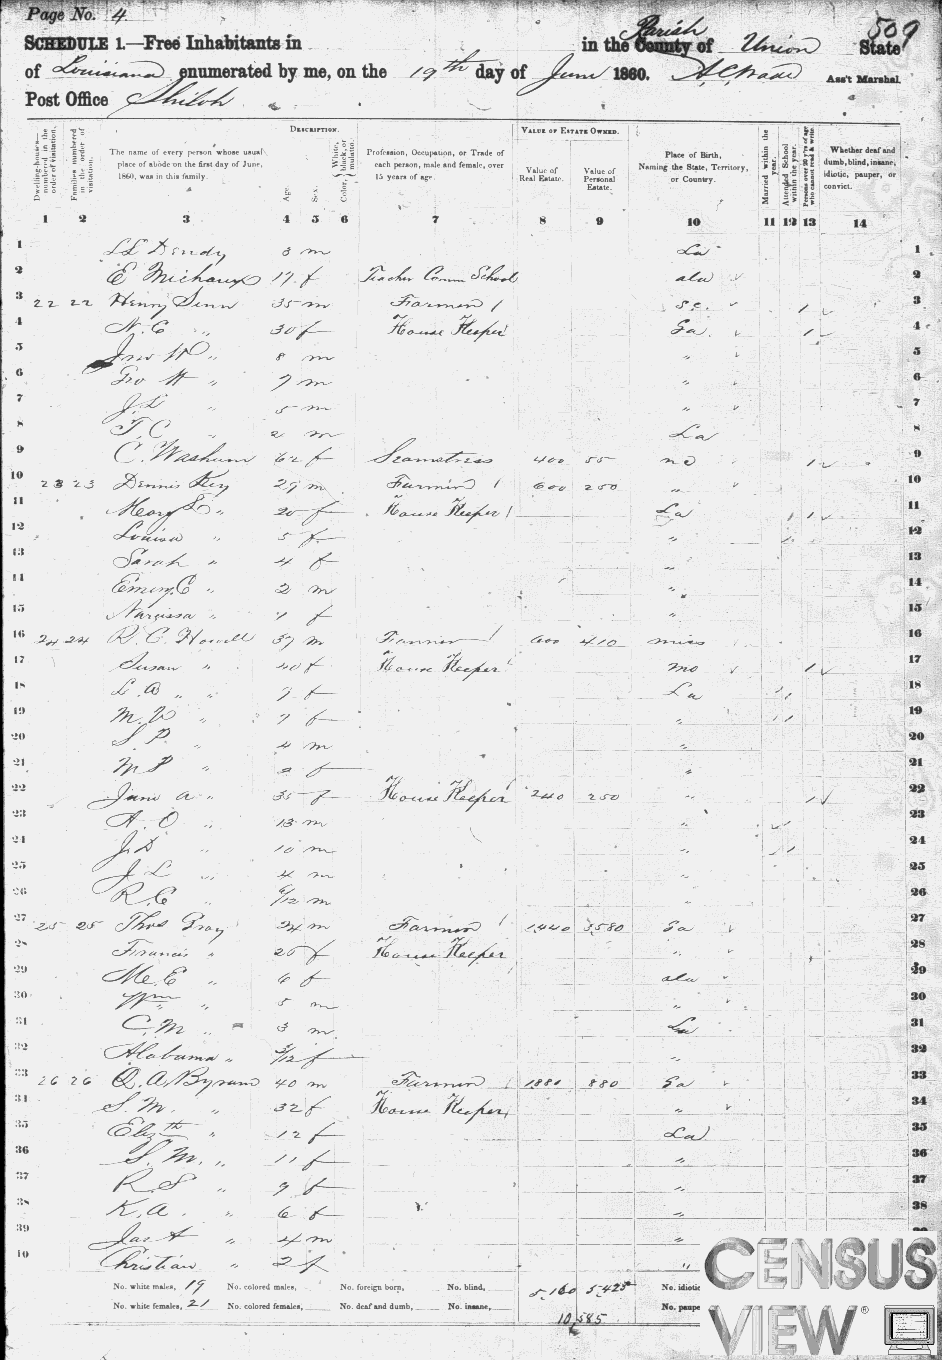 Page No. 4
509
SCHEDULE 1.—Free Inhabitants in in the County of Parish Union State
of Louisiana enumerated by me, on the 19th day of June 1860. Ass't Marshal.
Post Office Shiloh
Dwelling-houses—numbered in the order of visitation.
Families numbered in the order of visitation.
The name of every person whose usual place of abode on the first day of June, 1860, was in this family.
DESCRIPTION.
Age.
Sex.
Color, White, black, or mulatto.
Profession, Occupation, or Trade of each person, male and female, over 15 years of age.
VALUE OF ESTATE OWNED.
Value of Real Estate.
Value of Personal Estate.
Place of Birth, Naming the State, Territory, or Country.
Married within the year.
Attended School within the year.
Persons over 20 y'rs of age who cannot read & write.
Whether deaf and dumb, blind, insane, idiotic, pauper, or convict.
1 2 3 4 5 6 7 8 9 10 11 12 13 14
1 LL Dendy 3 m La 1
2 E Michaux 17 f Teacher Comm School ala 2
3 22 22 Henry 35 m Farmer 1 S.C. 1 3
4 N. C " 30 f House Keeper Ga 1 4
5 Jno W " 8 m " 5
6 Geo H " 7 m " 6
7 J. L " 5 m " 7
8 T. C " 2 m La 8
9 C. Washum 62 f Seamstress 400 55 1 9
10 23 23 Dennis Key 29 m Farmer 1 600 250 " 10
11 Mary " 20 f House Keeper 1 La 1 1 11
12 Louisa " 5 f " 12
13 Sarah " 4 f " 13
14 Emery C " 2 m " 14
15 Narcissa " 1 f " 15
16 24 24 R. C. Howell 37 m Farmer 1 600 410 miss 16
17 Susan " 40 f House Keeper mo 1 17
18 L. A " " 7 f La 18
19 M. V " 7 f " 19
20 S. P. " 4 m " 20
21 M P " 2 f " 21
22 Jane A " 35 f House Keeper 240 250 " 1 22
23 A. O " 13 m " 23
24 J. D " 10 m " 24
25 J. L " 4 m " 25
26 R. E " 6/12 m " 26
27 25 25 Thos Gray 24 m Farmer 1 1,440 3,580 Ga 27
28 Francis " 20 f House Keeper " 28
29 M. E " 6 f ala 29
30 Wm " 5 m " 30
31 C. M " 3 m La 31
32 Alabama " f " 32
33 26 26 Q. A. Bynum 40 m Farmer 1 880 Ga 33
34 S. M. " 32 f House Keeper " 34
35 Elizth " 12 f La 35
36 S. M. " 11 f " 36
37 R. S " 9 f " 37
38 K. A. " 6 f " 38
39 Jas A " 4 m "
40 Christian " 2 f "
No. white males, 19 No. colored males, No. foreign born, No. blind, 5,160 5,425 No. idiotic
No. white females, 21 No. colored females, No. deaf and dumb, No. insane, 10,585 No. paupe
CENSUS
VIEW®